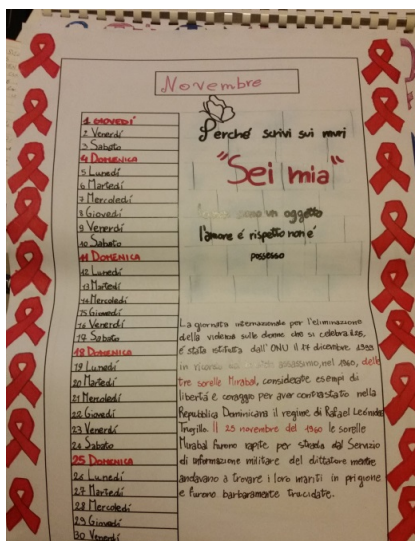 Novembre
1 GIOVEDI'
2 Venerdí
3 Sabato
4 DOMENICA
5 Lunedí
6 Martedí
7 Mercoledí
8 Giovedí
9 Venerdí
10 Sabato
11 DOMENICA
12 Lunedí
13 Martedí
14 Mercoledí
15 Giovedí
16 Venerdí
17 Sabato
18 DOMENICA
19 Lunedí
20 Martedí
21 Mercoledí
22 Giovedí
23 Venerdí
24 Sabato
25 DOMENICA
26 Lunedí
27 Martedí
28 Mercoledí
29 Giovedí
30 Venerdí
Perché scrivi sui muri
"Sei mia"
sono un oggetto
l'amore é rispetto non é
possesso
La giornata internazionale per l'eliminazione
della violenza sulle donne che si celebra
é stata istituita dall' ONU il 17 dicembre 1999
in ricordo assassinio, nel 1960, delle
tre sorelle Mirabal, considerate esempi di
libertá e coraggio per aver contrastato nella
Repubblica Dominicana il regime di Rafael Leónidas
Trujillo. Il 25 novembre del 1960 le sorelle
Mirabal furono rapite per strada dal Servizio
di informazione militare del dittatore mentre
andavano a trovare i loro mariti in prigione
e furono barbaramente trucidate.